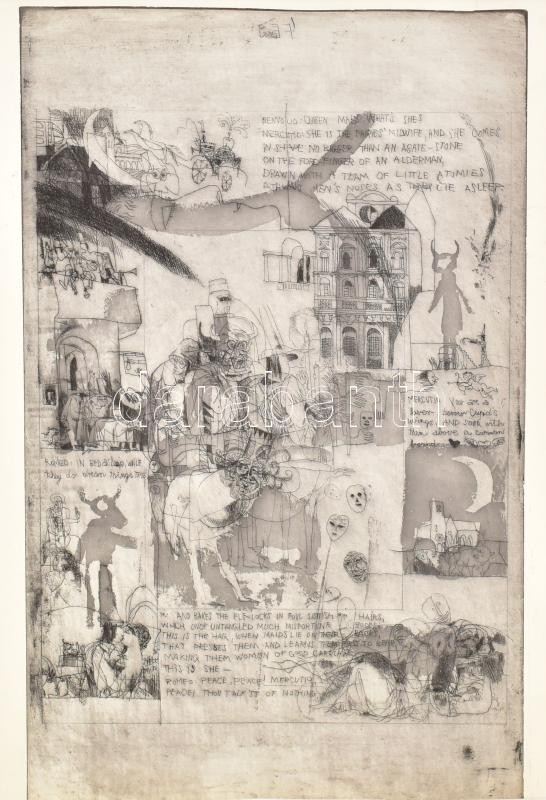 BENVOLIO: QUEEN MAB? WHAT'S SHE?
MERCUTIO: SHE IS THE FAIRIES' MIDWIFE, AND SHE COMES
IN SHAPE NO BIGGER THAN AN AGATE-STONE
ON THE FORE-FINGER OF AN ALDERMAN,
DRAWN WITH A TEAM OF LITTLE ATOMIES
MEN'S NOSES AS THEY LIE ASLEEP
darabanth
MERCUTIO: You are a
lover: borrow Cupid's
wings, AND soar with
them above a common
bound.
ROMEO: IN BED ASLEEP, WHILE
they do dream things true
AND BAKES THE ELF-LOCKS IN FOUL SLUTTISH HAIRS,
WHICH ONCE UNTANGLED MUCH MISFORTUNE BODES
THIS IS THE HAG, WHEN MAIDS LIE ON THEIR BACKS
THAT PRESSES THEM AND LEARNS THEM FIRST TO BEAR
MAKING THEM WOMEN OF GOOD CARRIAGE
THIS IS SHE —
ROMEO: PEACE, PEACE! MERCUTIO
PEACE! THOU TALK'ST OF NOTHING